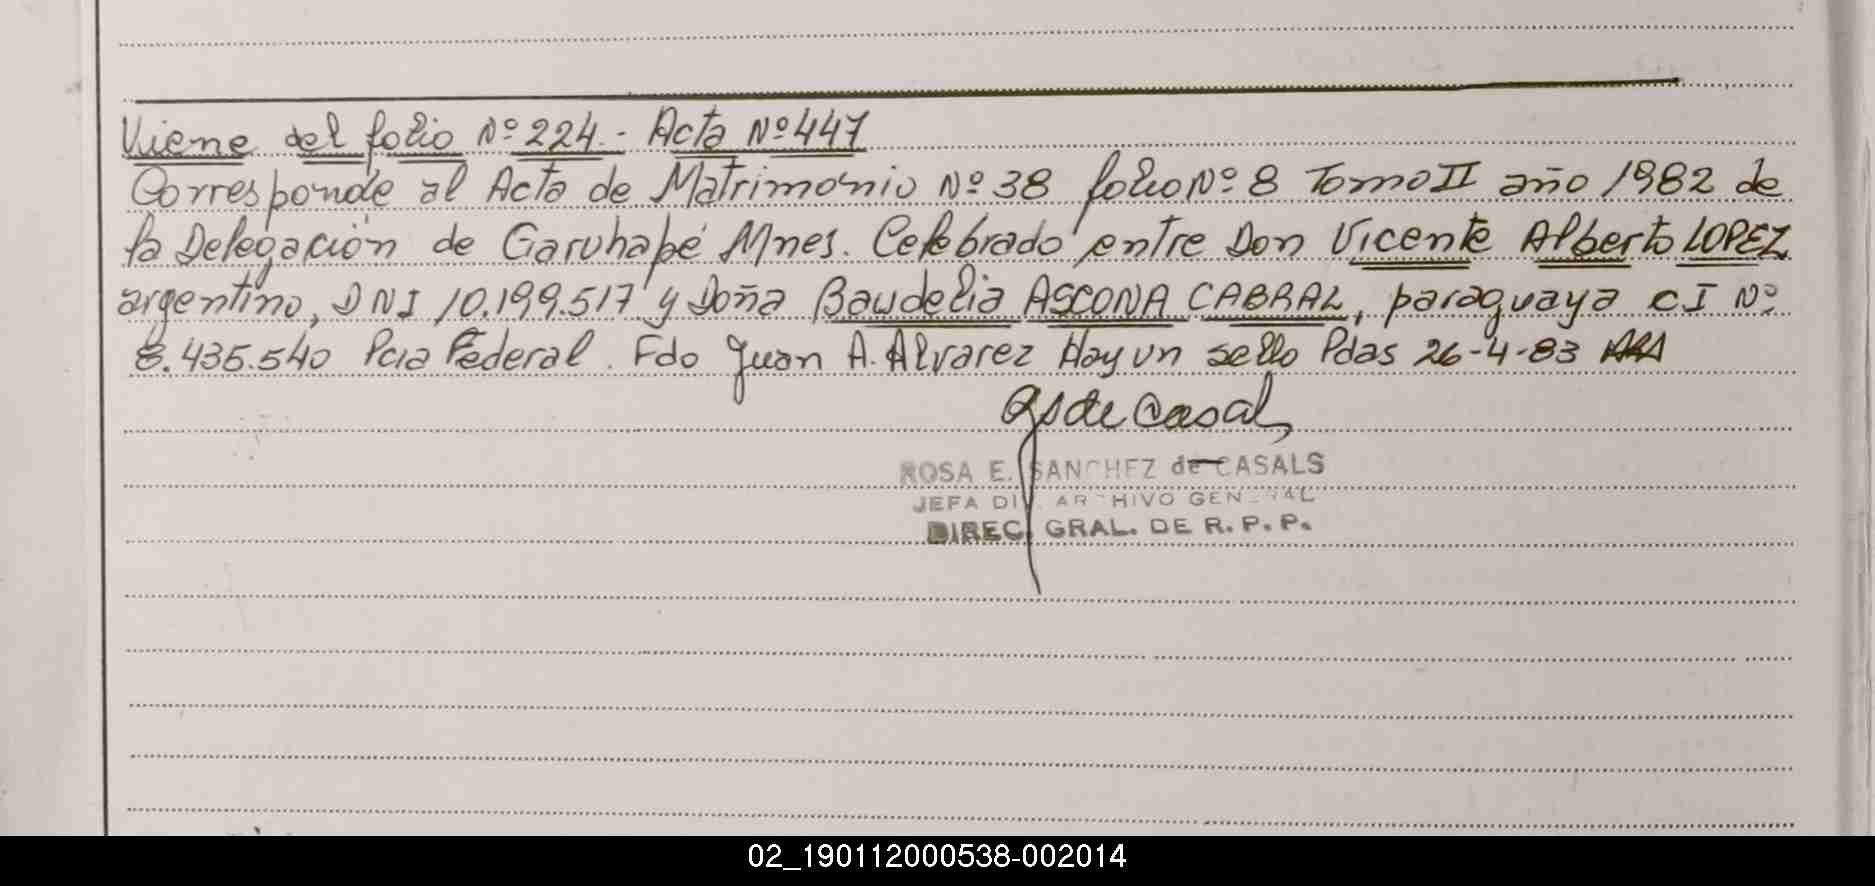 Viene del folio Nº 224 - Acta Nº 447
Corresponde al Acta de Matrimonio Nº 38 folio Nº 8 Tomo II año 1982 de
la Delegación de Garuhapé Mnes. Celebrado entre Don Vicente Alberto LOPEZ
argentino, DNI 10.199.517 y Doña Baudelia ASCONA CABRAL, paraguaya CI Nº
8.435.540 Pcia Federal. Fdo Juan A. Alvarez Hay un sello Pdas 26-4-83
de Casals
ROSA E. SANCHEZ de CASALS
JEFA DIV. ARCHIVO GENERAL
DIREC. GRAL. DE R. P. P.
02_190112000538-002014